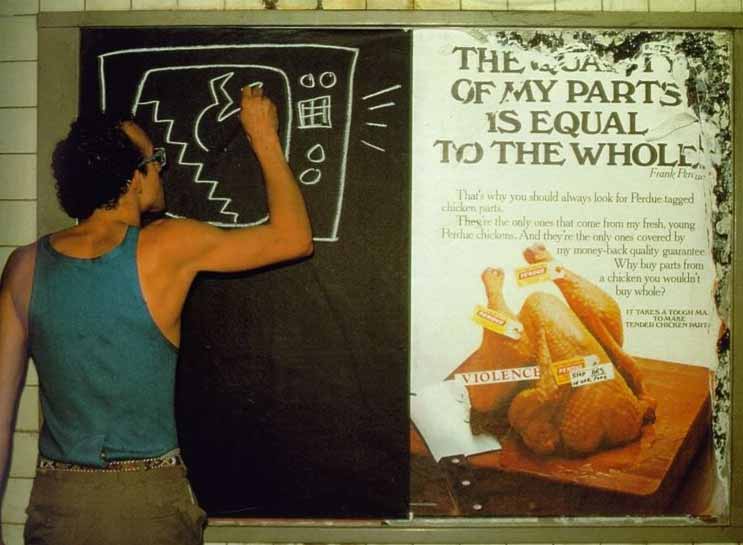 THE QUALITY
OF MY PARTS
IS EQUAL
TO THE WHOLE.
Frank Perdue
That's why you should always look for Perdue tagged
chicken parts.
They're the only ones that come from my fresh, young
Perdue chickens. And they're the only ones covered by
my money-back quality guarantee.
Why buy parts from
a chicken you wouldn't
buy whole?
IT TAKES A TOUGH MA
TO MAKE
TENDER CHICKEN PART
PERDUE
PERDUE
PERDUE
VIOLENCE